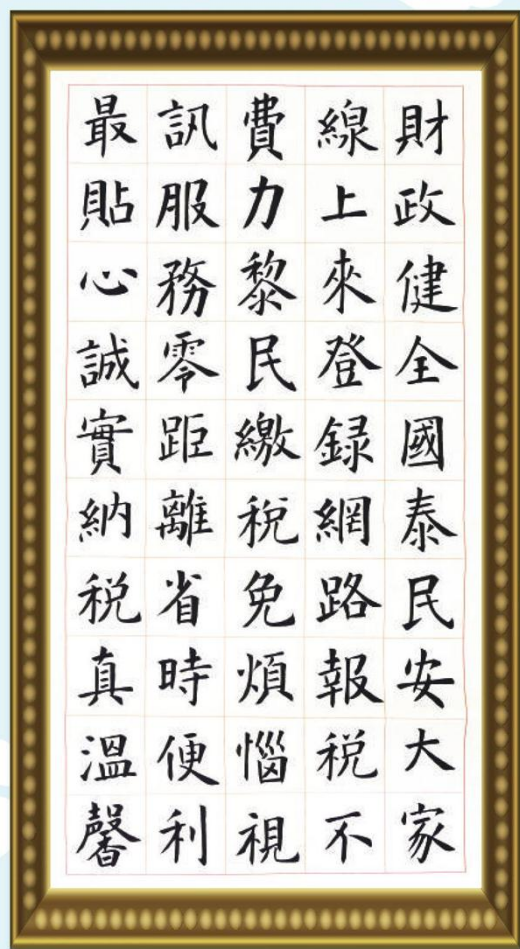 財政健全國泰民安大家
線上來登録網路報税不
費力黎民繳税免煩惱視
訊服務零距離省時便利
最貼心誠實納税真溫馨